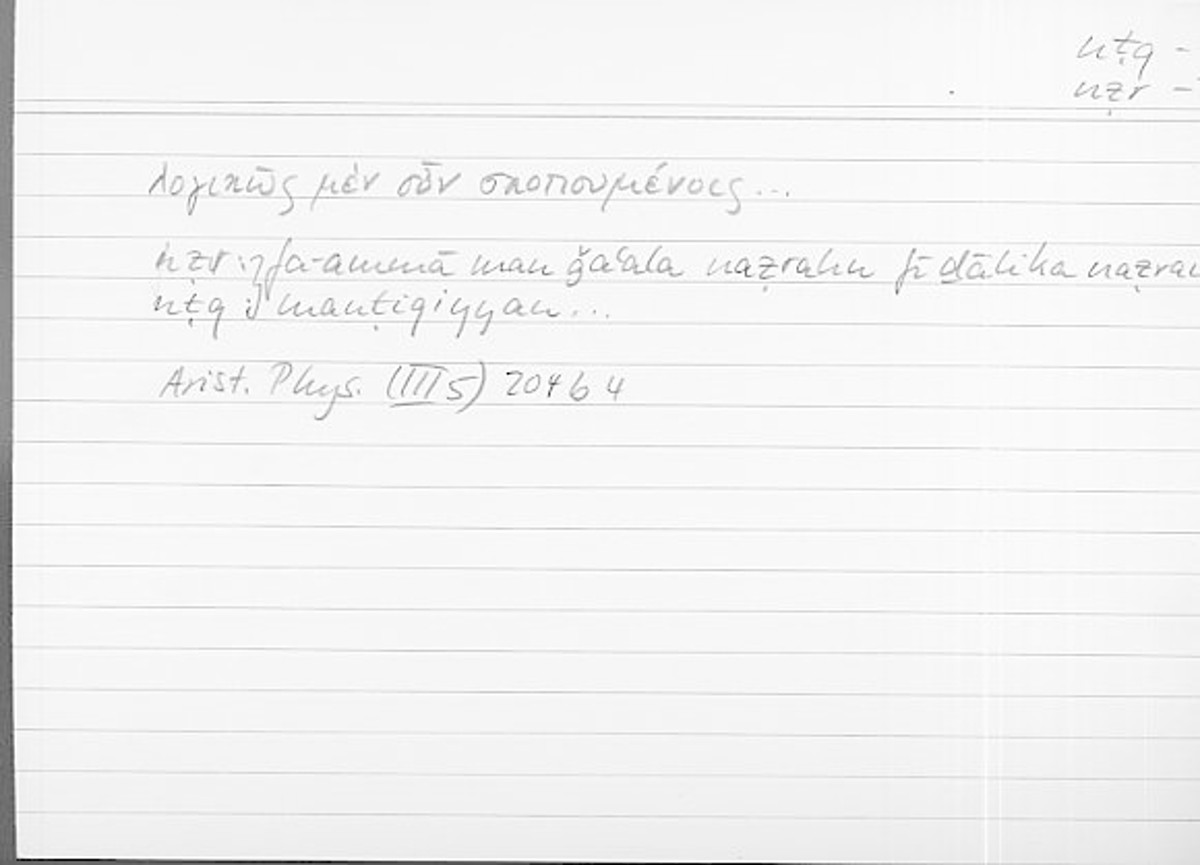 nṭq -
nẓr -
λογικῶς μὲν οὖν σκοπουμένοις...
nẓr fa-ammā man ǧaʿala naẓrahu fī ḏālika
nṭq manṭiqiyyan...
Arist. Phys. (III 5) 204 b 4